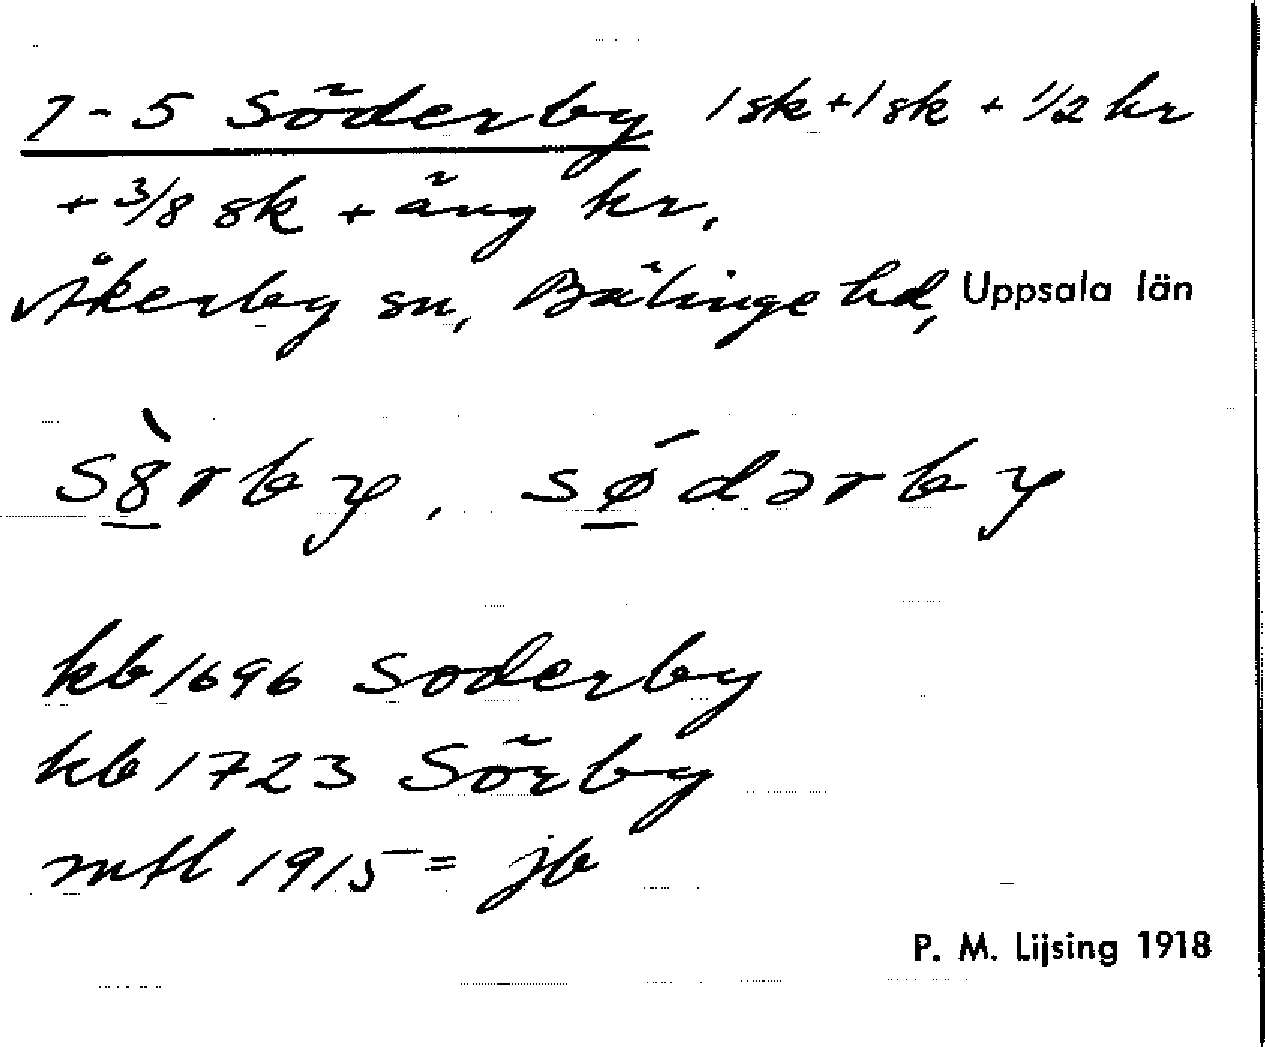 1-5 Söderby 1 sk + 1 sk + 1/2 kr
+ 3/8 sk + äng kr,
Åkerby sn, Bälinge hd, Uppsala län
s8̲̀rby, sǿ̲dərby
kb 1696 Soderby
kb 1723 Sörby
mtl 1915 = jb
P. M. Lijsing 1918